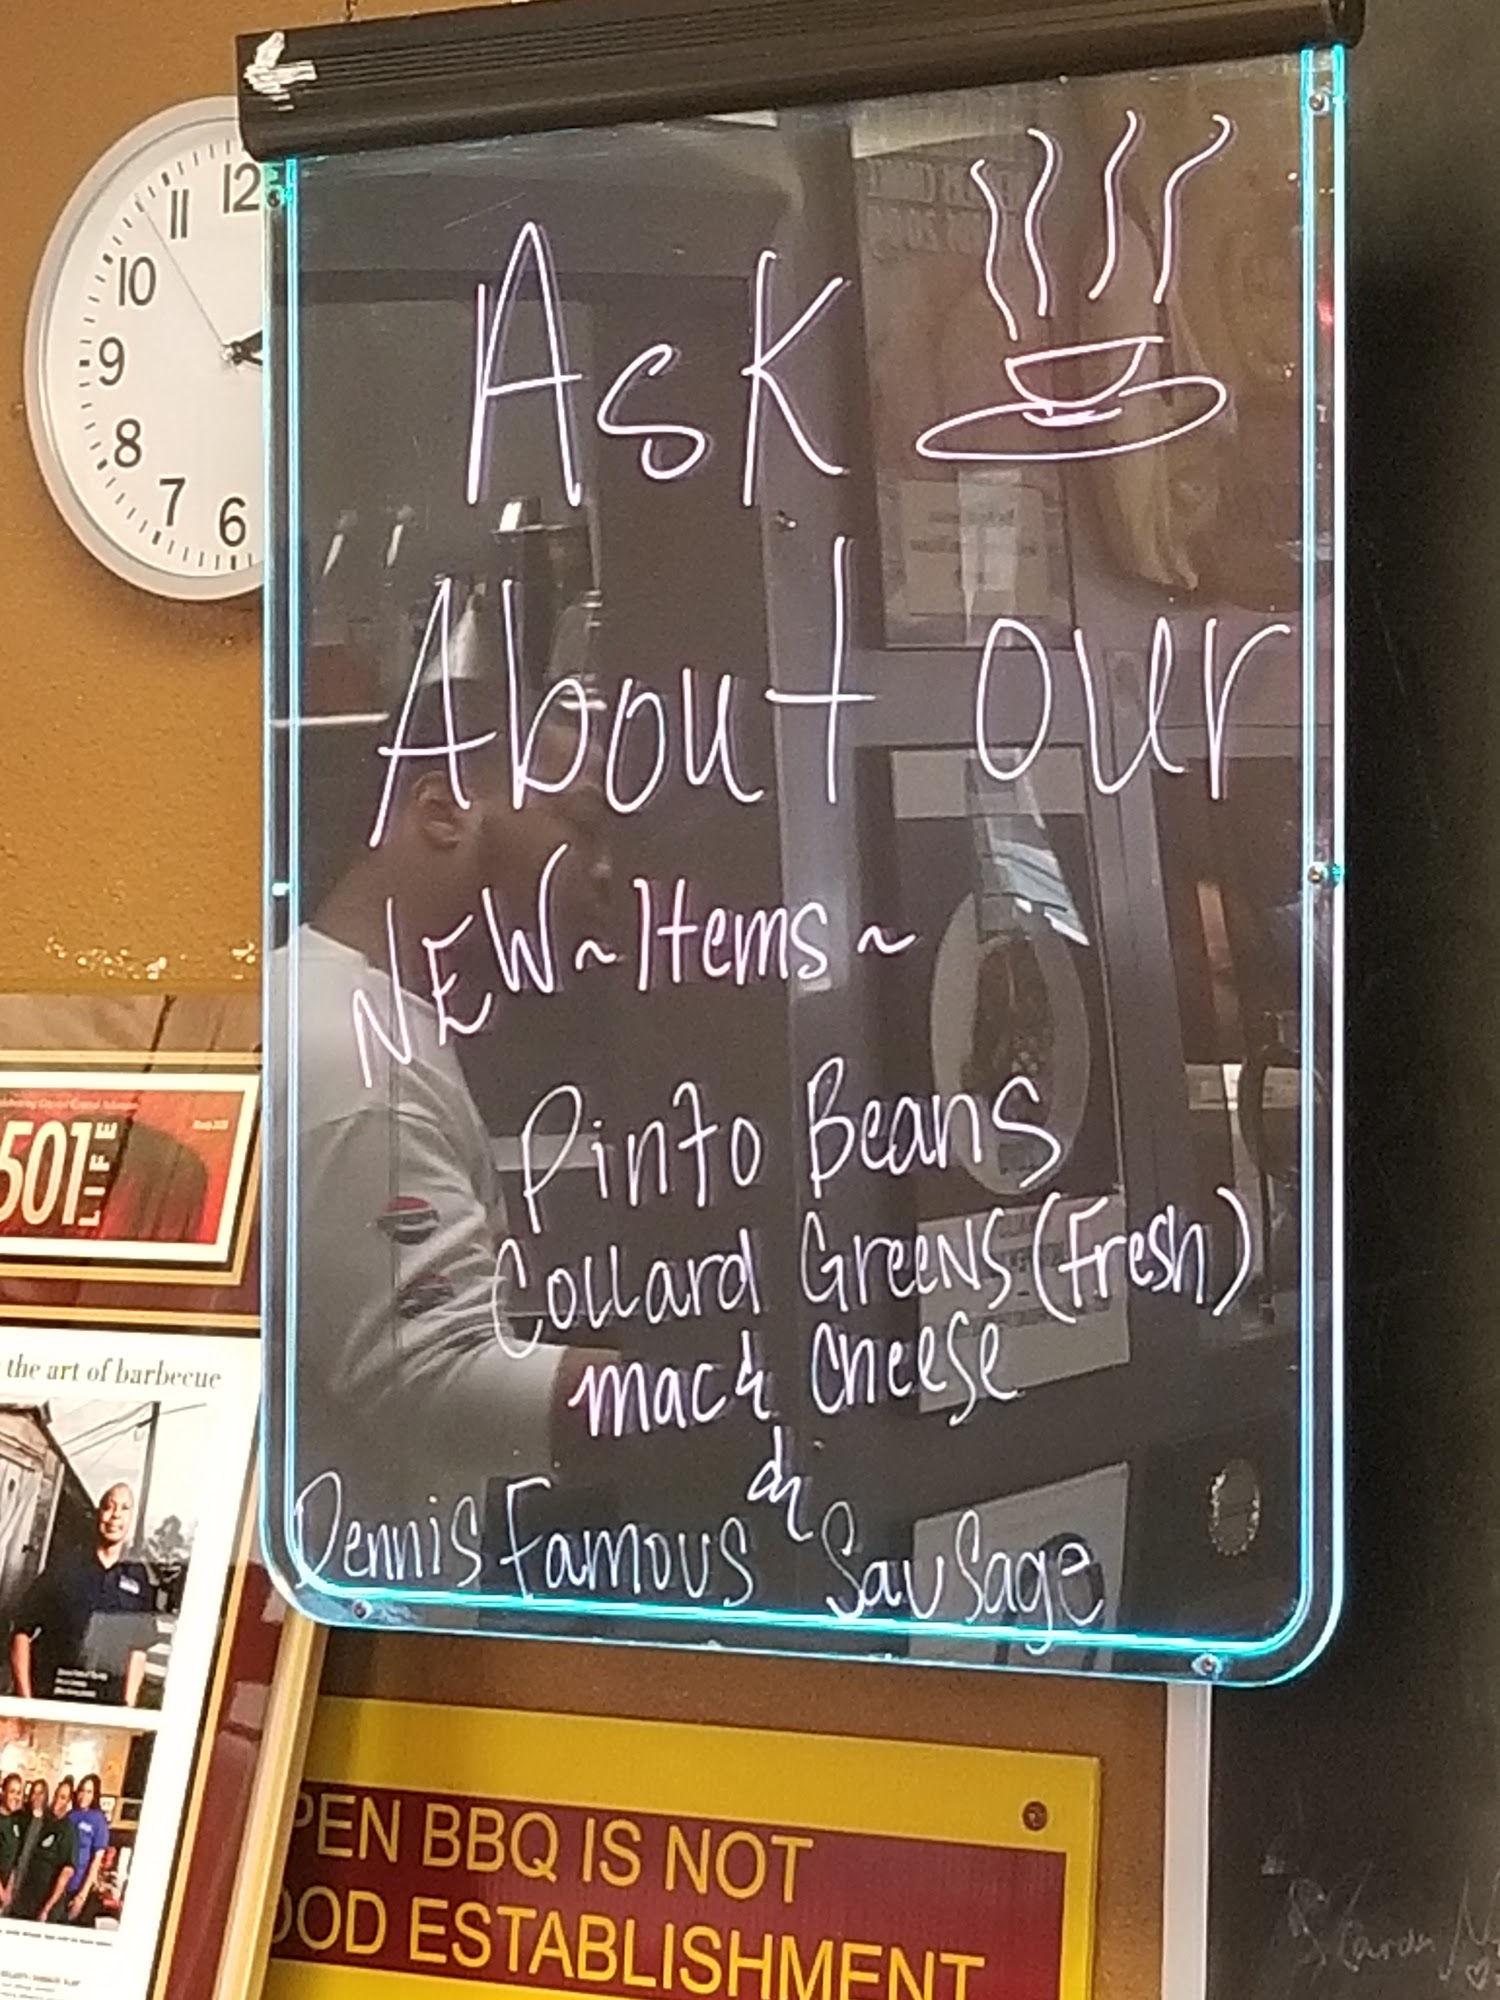 12
11
10
9
8
7
6
Ask
About our
NEW ~ Items ~
Pinto Beans
Collard Greens (Fresh)
mac & Cheese
&
Dennis Famous Sausage
501 LIFE
the art of barbecue
PEN BBQ IS NOT
OOD ESTABLISHMENT